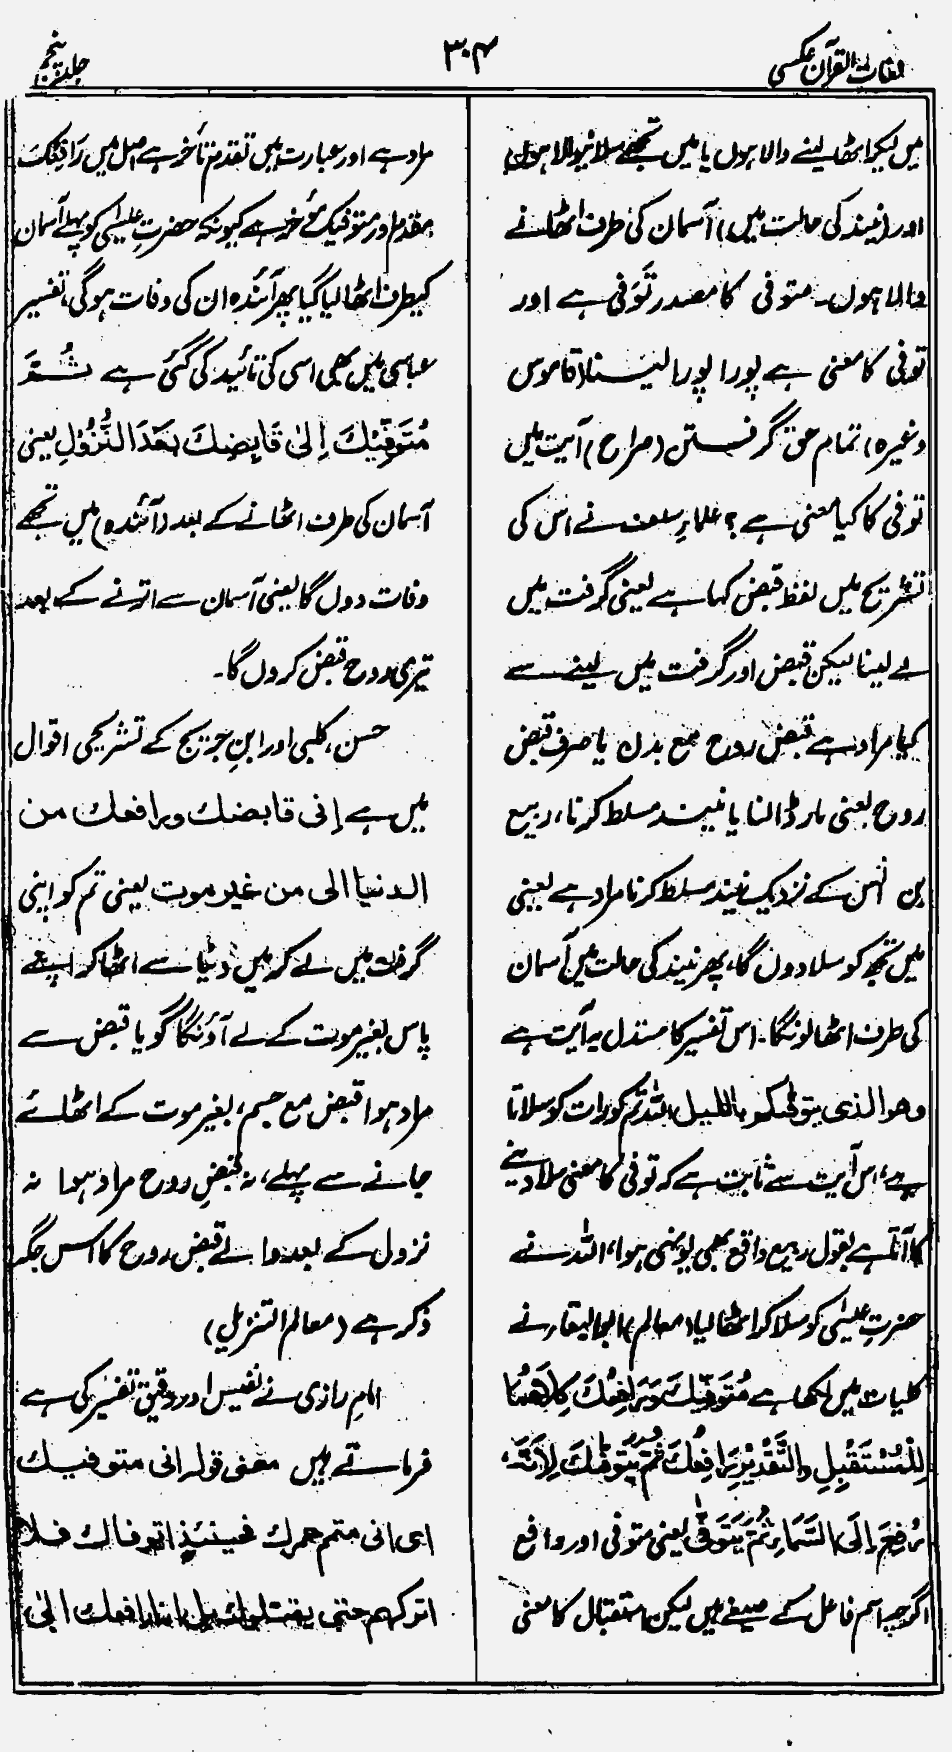 لغات القرآن عکسی
۳۰۴
جلد پنجم
میں لیکر اٹھا لینے والا ہوں یا میں تجھے سلانیوالا ہوں
اور (نیند کی حالت میں) آسمان کی طرف اٹھانے
والا ہوں۔ متوفی کا مصدر تَوَفی ہے اور
توفی کا معنی ہے پورا پورا لینا (قاموس
وغیرہ) تمام حق گرفتن (صراح) آیت میں
توفی کا کیا معنی ہے؟ علماءِ سلف نے اس کی
تشریح میں لفظ قبض کہا ہے یعنی گرفت میں
لے لینا لیکن قبض اور گرفت میں لینے سے
کیا مراد ہے قبض روح مع بدن یا صرف قبض
روح یعنی مار ڈالنا یا نیند مسلط کرنا، ربیع
بن انس کے نزدیک نیند مسلط کرنا مراد ہے یعنی
میں تجھ کو سلا دوں گا، پھر نیند کی حالت میں آسمان
کی طرف اٹھا لونگا۔ اس تفسیر کا مستدل یہ آیت ہے
وھو الذی یتوفٰکم باللیل، اللہ تم کو رات کو سلاتا
ہے، اس آیت سے ثابت ہے کہ توفی کا معنی سلا دینے
کا آتا ہے بقول ربیع واقع بھی یونہی ہوا، اللہ نے
حضرتِ عیسٰی کو سلا کر اٹھا لیا (معالم) ابوالبقاء نے
کلیات میں لکھا ہے مُتَوَفِّیْكَ وَرَافِعُكَ كِلَاهُمَا
لِلْمُسْتَقْبِلِ وَالتَّقْدِیْرُ رَافِعُكَ ثُمَّ مُتَوَفِّیْكَ لِأَنَّهٗ
رُفِعَ إِلَى السَّمَاءِ ثُمَّ یُتَوَفّٰی یعنی متوفی اور رافع
اگرچہ اسم فاعل کے صیغے ہیں لیکن استقبال کا معنی
مراد ہے اور عبارت میں تقدم تأخر ہے اصل میں رَافِعُكَ
مقدم اور متوفیك مؤخر ہے کیونکہ حضرتِ عیسٰی کو پہلے آسمان
کیطرف اٹھا لیا گیا پھر آئندہ ان کی وفات ہوگی، تفسیر
عباسی میں بھی اسی کی تائید کی گئی ہے ثُمَّ
مُتَوَفِّیْكَ اِلٰی قَابِضِكَ بَعْدَ النُّزُوْلِ یعنی
آسمان کی طرف اٹھانے کے بعد (آئندہ) میں تجھے
وفات دوں گا یعنی آسمان سے اترنے کے بعد
تیری روح قبض کروں گا۔
حسن، کلبی اور ابنِ جریج کے تشریحی اقوال
میں ہے اِنی قابضك ورافعك من
الدنیا الی من غیر موت یعنی تم کو اپنی
گرفت میں لے کر میں دنیا سے اٹھا کر اپنے
پاس بغیر موت کے لے آؤنگا گویا قبض سے
مراد ہوا قبض مع جسم، بغیر موت کے اٹھائے
جانے سے پہلے، نہ قبضِ روح مراد ہوا نہ
نزول کے بعد والے قبض روح کا اس جگہ
ذکر ہے (معالم التنزیل)
امامِ رازی نے نفیس اور دقیق تفسیر کی ہے
فرماتے ہیں معنی قولہ انی متوفیك
ای انی متم عمرك فحینئذٍ اتوفاك فلا
اترکھم حتی یقتلوك بل انا رافعك الی